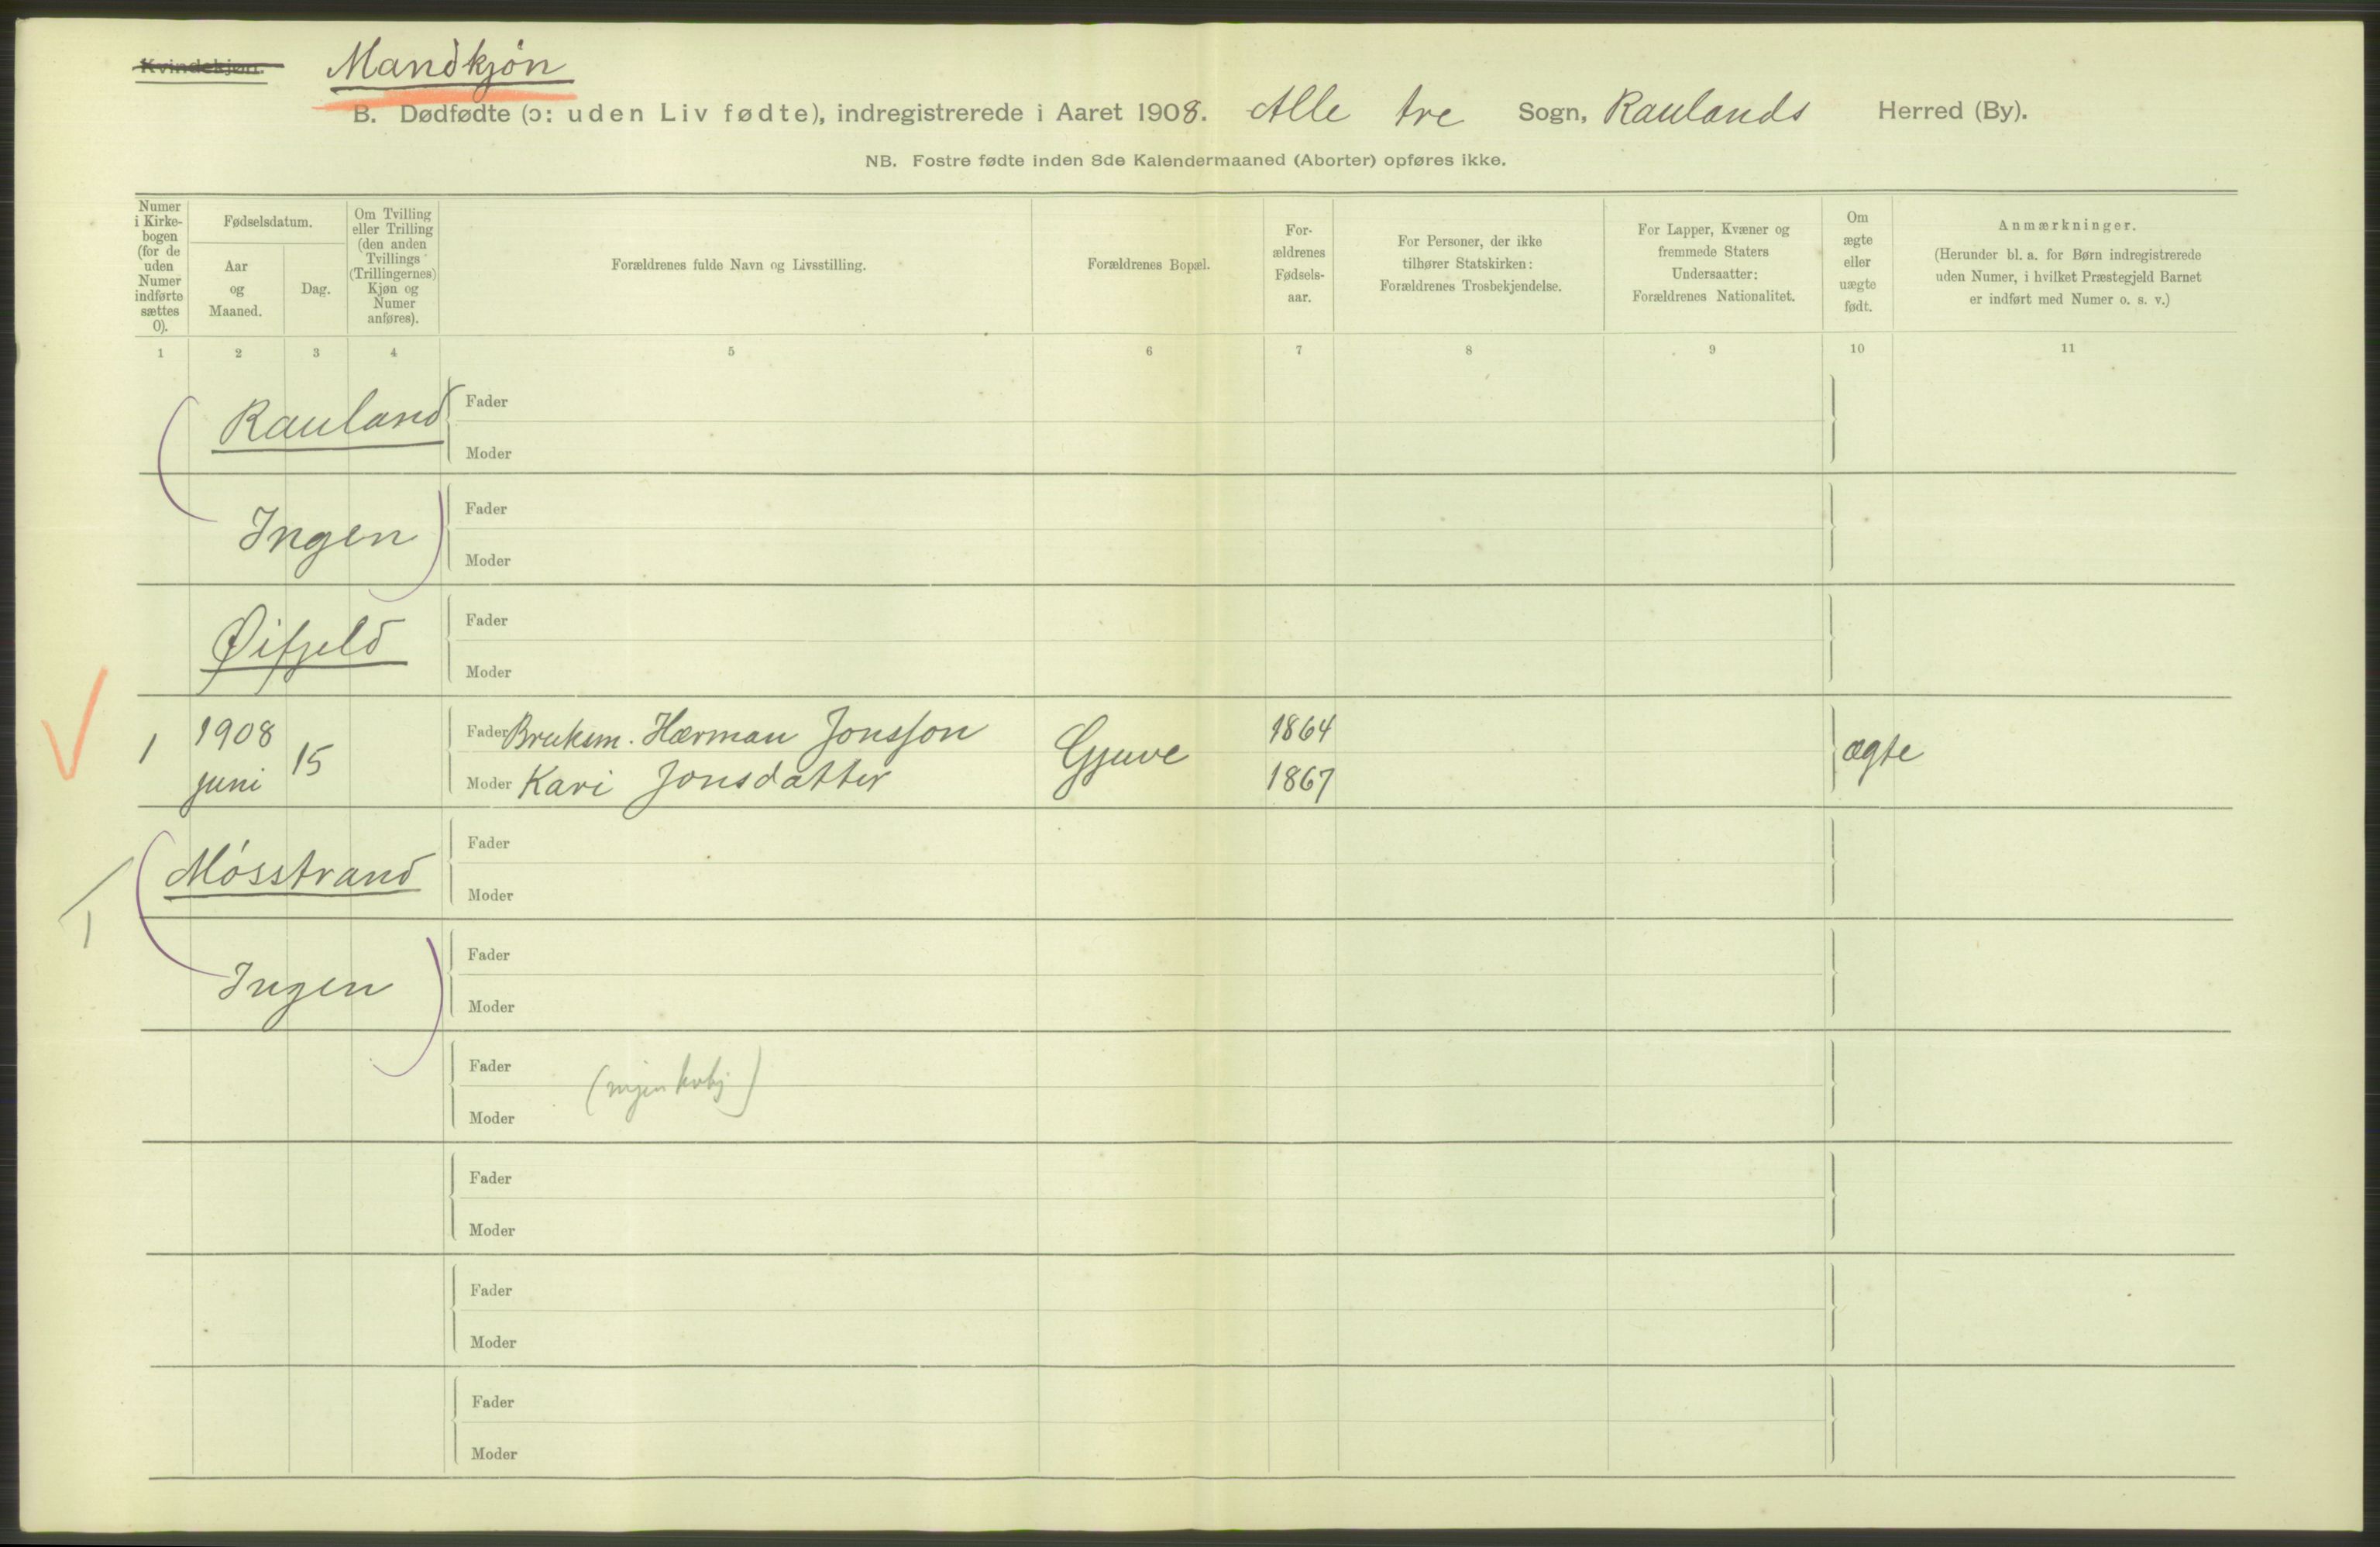 Kvindekjøn. Mandkjön
B. Dødfødte (ɔ: uden Liv fødte), indregistrerede i Aaret 1908. Alle tre Sogn, Raulands Herred (By).
NB. Fostre fødte inden 8de Kalendermaaned (Aborter) opføres ikke.
Numer i Kirke-bogen (for de uden Numer indførte sættes 0).
Fødselsdatum.
Aar og Maaned.
Dag.
Om Tvilling eller Trilling (den anden Tvillings (Trillingernes) Kjøn og Numer anføres).
Forældrenes fulde Navn og Livsstilling.
Forældrenes Bopæl.
For-ældrenes Fødsels-aar.
For Personer, der ikke tilhører Statskirken: Forældrenes Trosbekjendelse.
For Lapper, Kvæner og fremmede Staters Undersaatter: Forældrenes Nationalitet.
Om ægte eller uægte født.
Anmærkninger.
(Herunder bl. a. for Børn indregistrerede uden Numer, i hvilket Præstegjeld Barnet er indført med Numer o. s. v.)
1 2 3 4 5 6 7 8 9 10 11
Rauland Fader
Moder
Ingen Fader
Moder
Øifjeld Fader
Moder
1 1908 juni 15 Fader Bruksm. Hærman Jonsson Gjuve 1864 ægte
Moder Kari Jonsdatter 1867
Mósstrand Fader
Moder
Ingen Fader
Moder
Fader
Moder
Fader
Moder
Fader
Moder
Fader
Moder